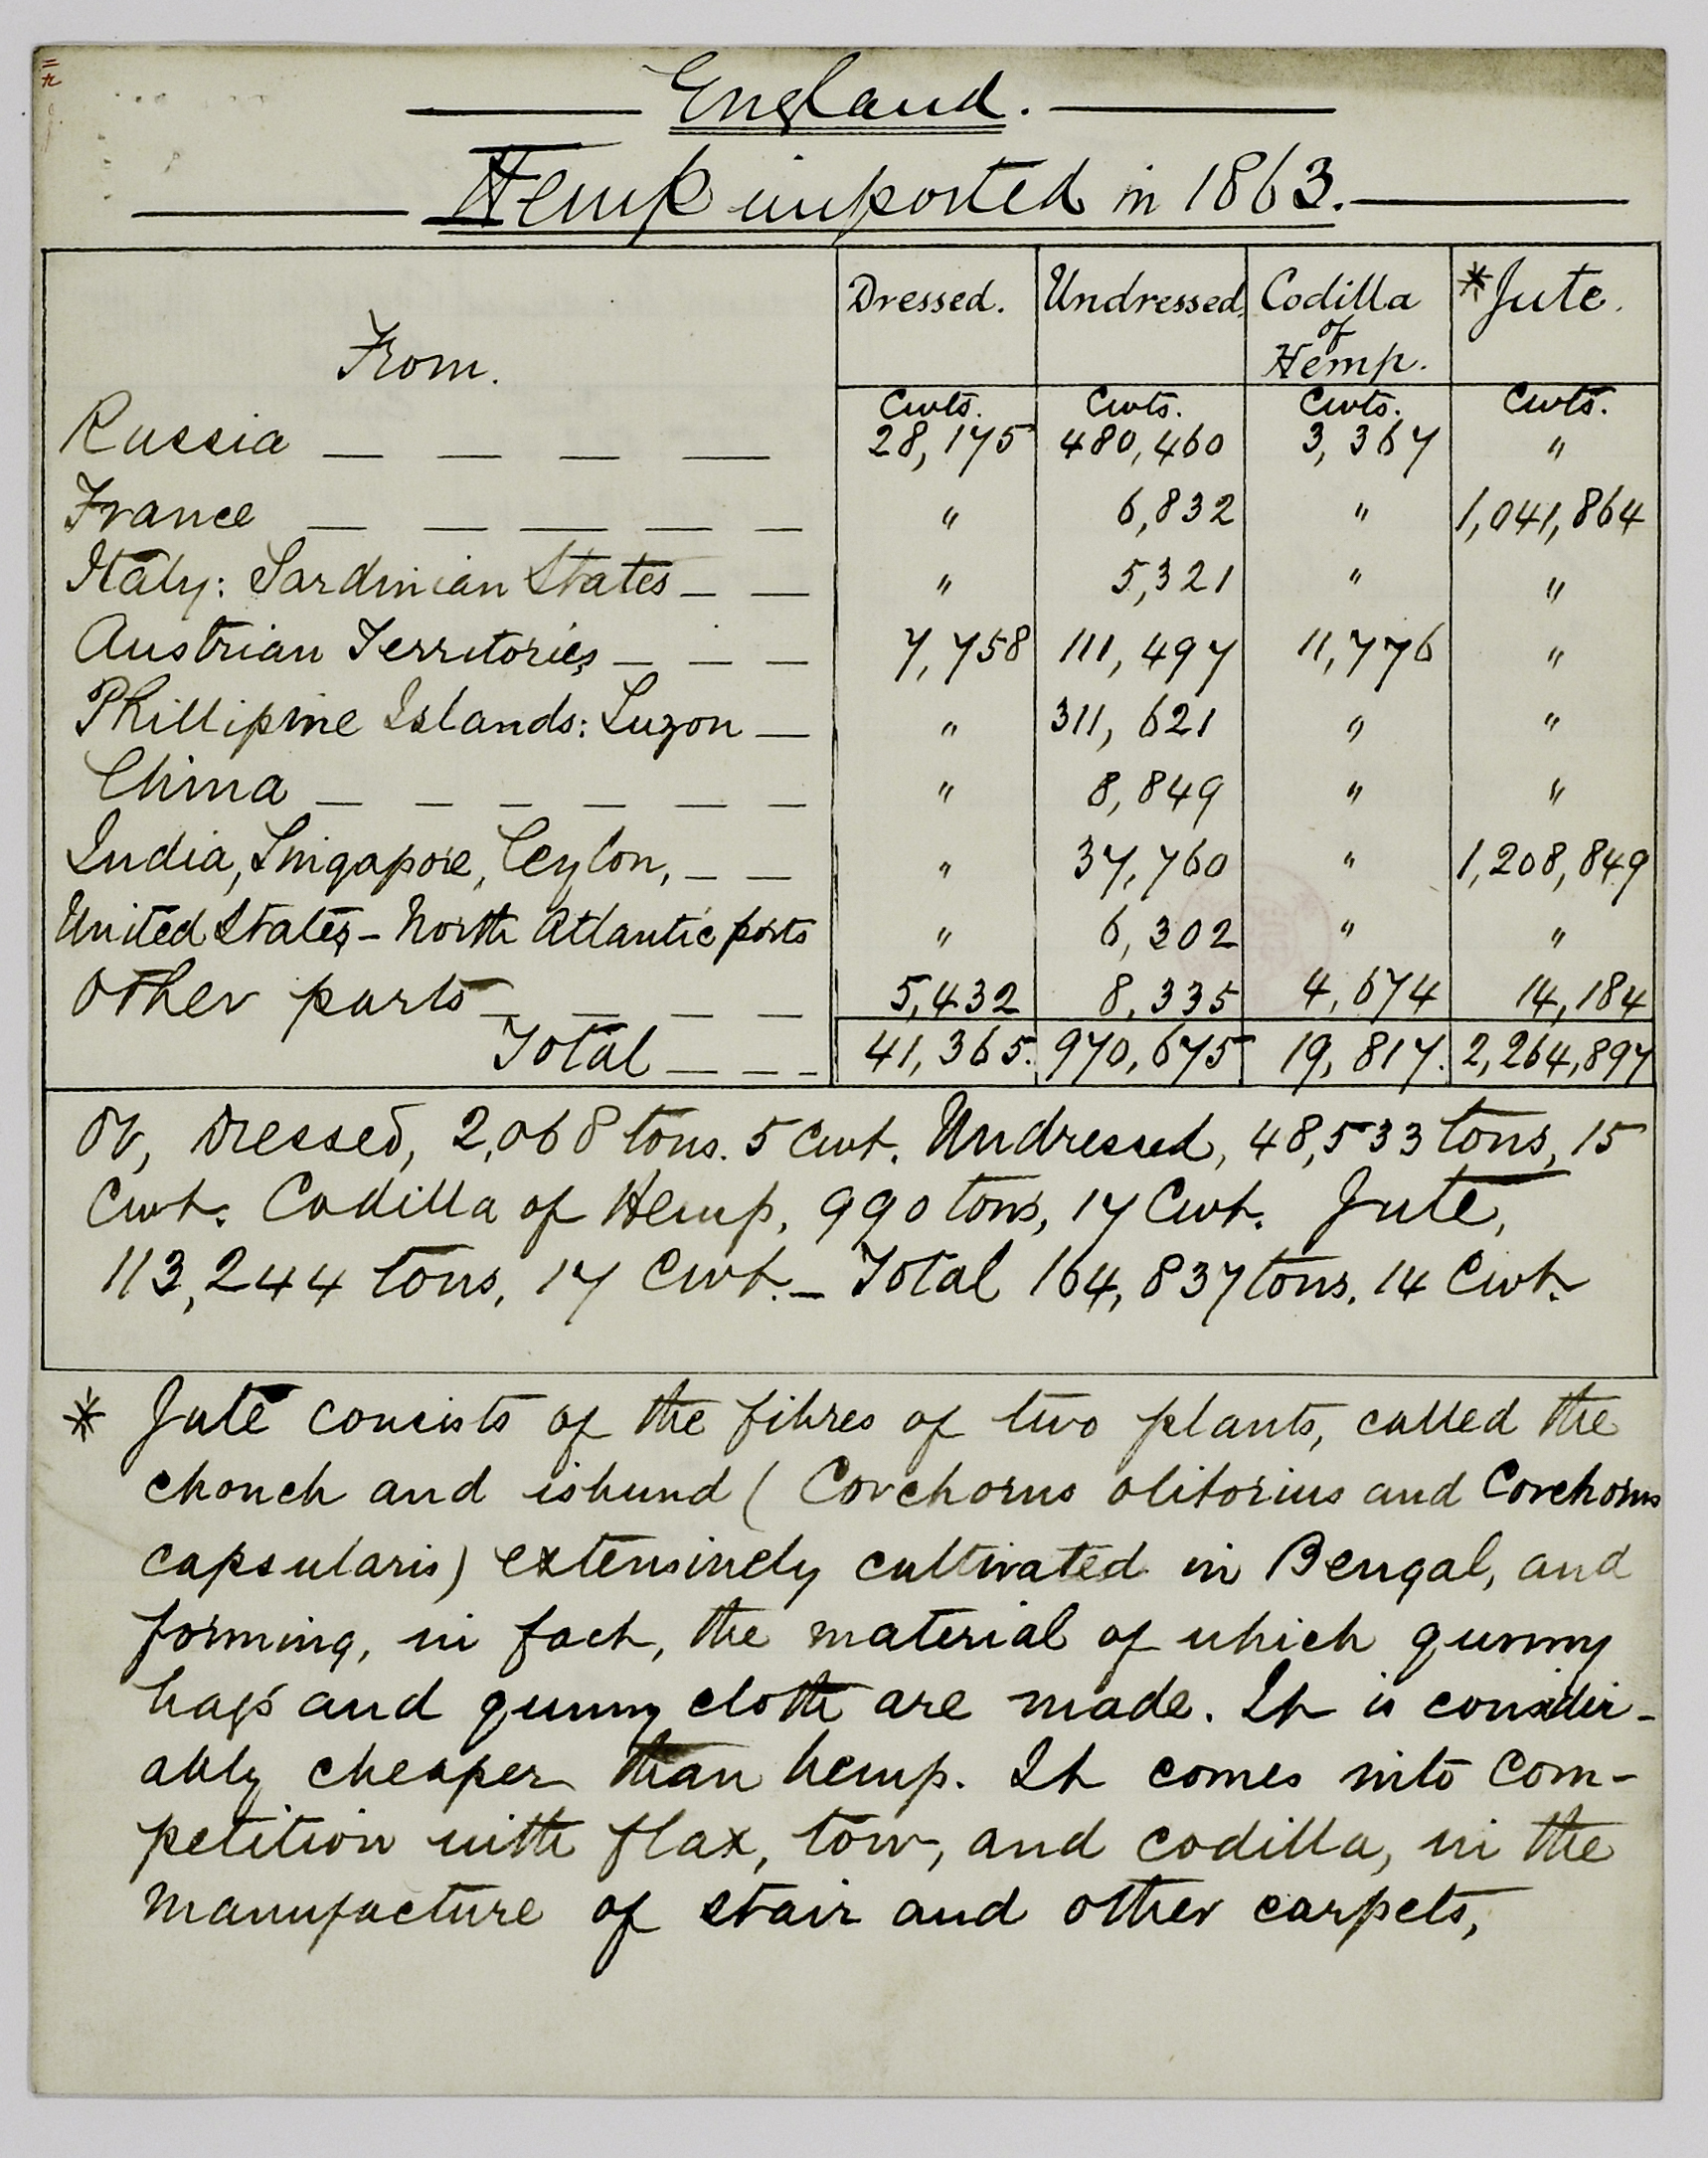 England.
Hemp imported in 1863.
From. Dressed. Undressed. Codilla of Hemp. *Jute.
Cwts. Cwts. Cwts. Cwts.
Russia — — — — 28,175 480,460 3,367 "
France — — — — — " 6,832 " 1,041,864
Italy: Sardinian States — — " 5,321 " "
Austrian Territories — — — 7,758 111,497 11,776 "
Phillipine Islands: Luzon — " 311,621 " "
China — — — — — — " 8,849 " "
India, Singapore, Ceylon, — — " 37,760 " 1,208,849
United States - North Atlantic ports " 6,302 " "
Other parts — — — — 5,432 8,335 4,674 14,184
Total — — — 41,365. 970,675 19,817. 2,264,897
Or, Dressed, 2,068 tons. 5 Cwt. Undressed, 48,533 tons, 15
Cwt. Codilla of Hemp, 990 tons, 17 Cwt. Jute,
113,244 tons, 17 Cwt. — Total 164,837 tons. 14 Cwt.
* Jute consists of the fibres of two plants, called the
chonch and isbund (Corchorus olitorius and Corchorus
capsularis) extensively cultivated in Bengal, and
forming, in fact, the material of which gunny
bags and gunny cloth are made. It is consider-
ably cheaper than hemp. It comes into com-
petition with flax, tow, and codilla, in the
manufacture of stair and other carpets,